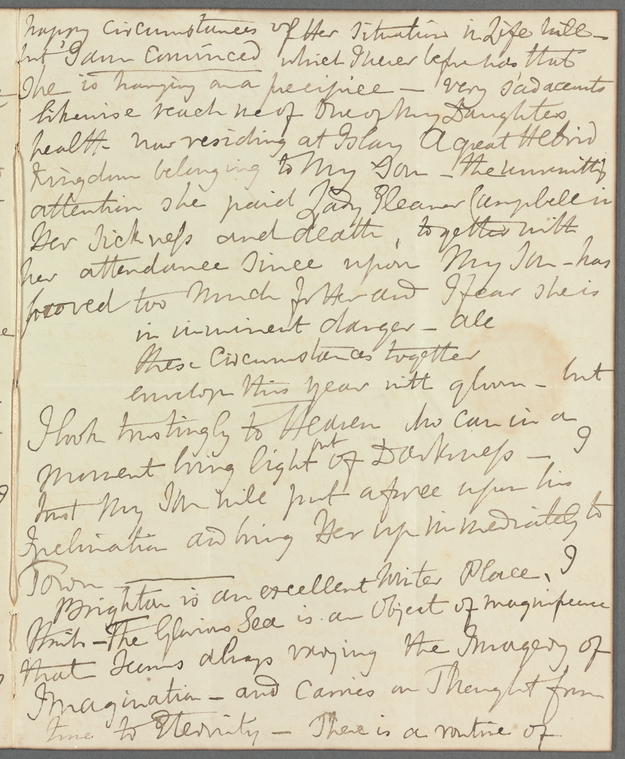 happy Circumstances of Her Situation in Life will –
but I am Convinced which I never before was that
She is hanging on a precipice – very sad accounts
likewise reach me of One of my Daughters
health – now residing at Islay A great Hebrid
Kingdom belonging to My Son – the unremitting
attention she paid Lady Eleanor Campbell in
Her Sickness and death, together with
her attendance Since upon My Son – has
prooved too Much for Her and I fear she is
in imminent danger – all
these Circumstances together
envelop this year with gloom – but
I look trustingly to Heaven who can in a
moment bring light out of Darkness – I
trust My Son will put a force upon his
Inclination and bring Her up immediately to
Town –
Brighton is an excellent Winter Place, I
think – The Glorious Sea is an Object of magnificence
that seems always varying the Imagery of
Imagination – and Carries on Thought from
time to Eternity – There is a routine of